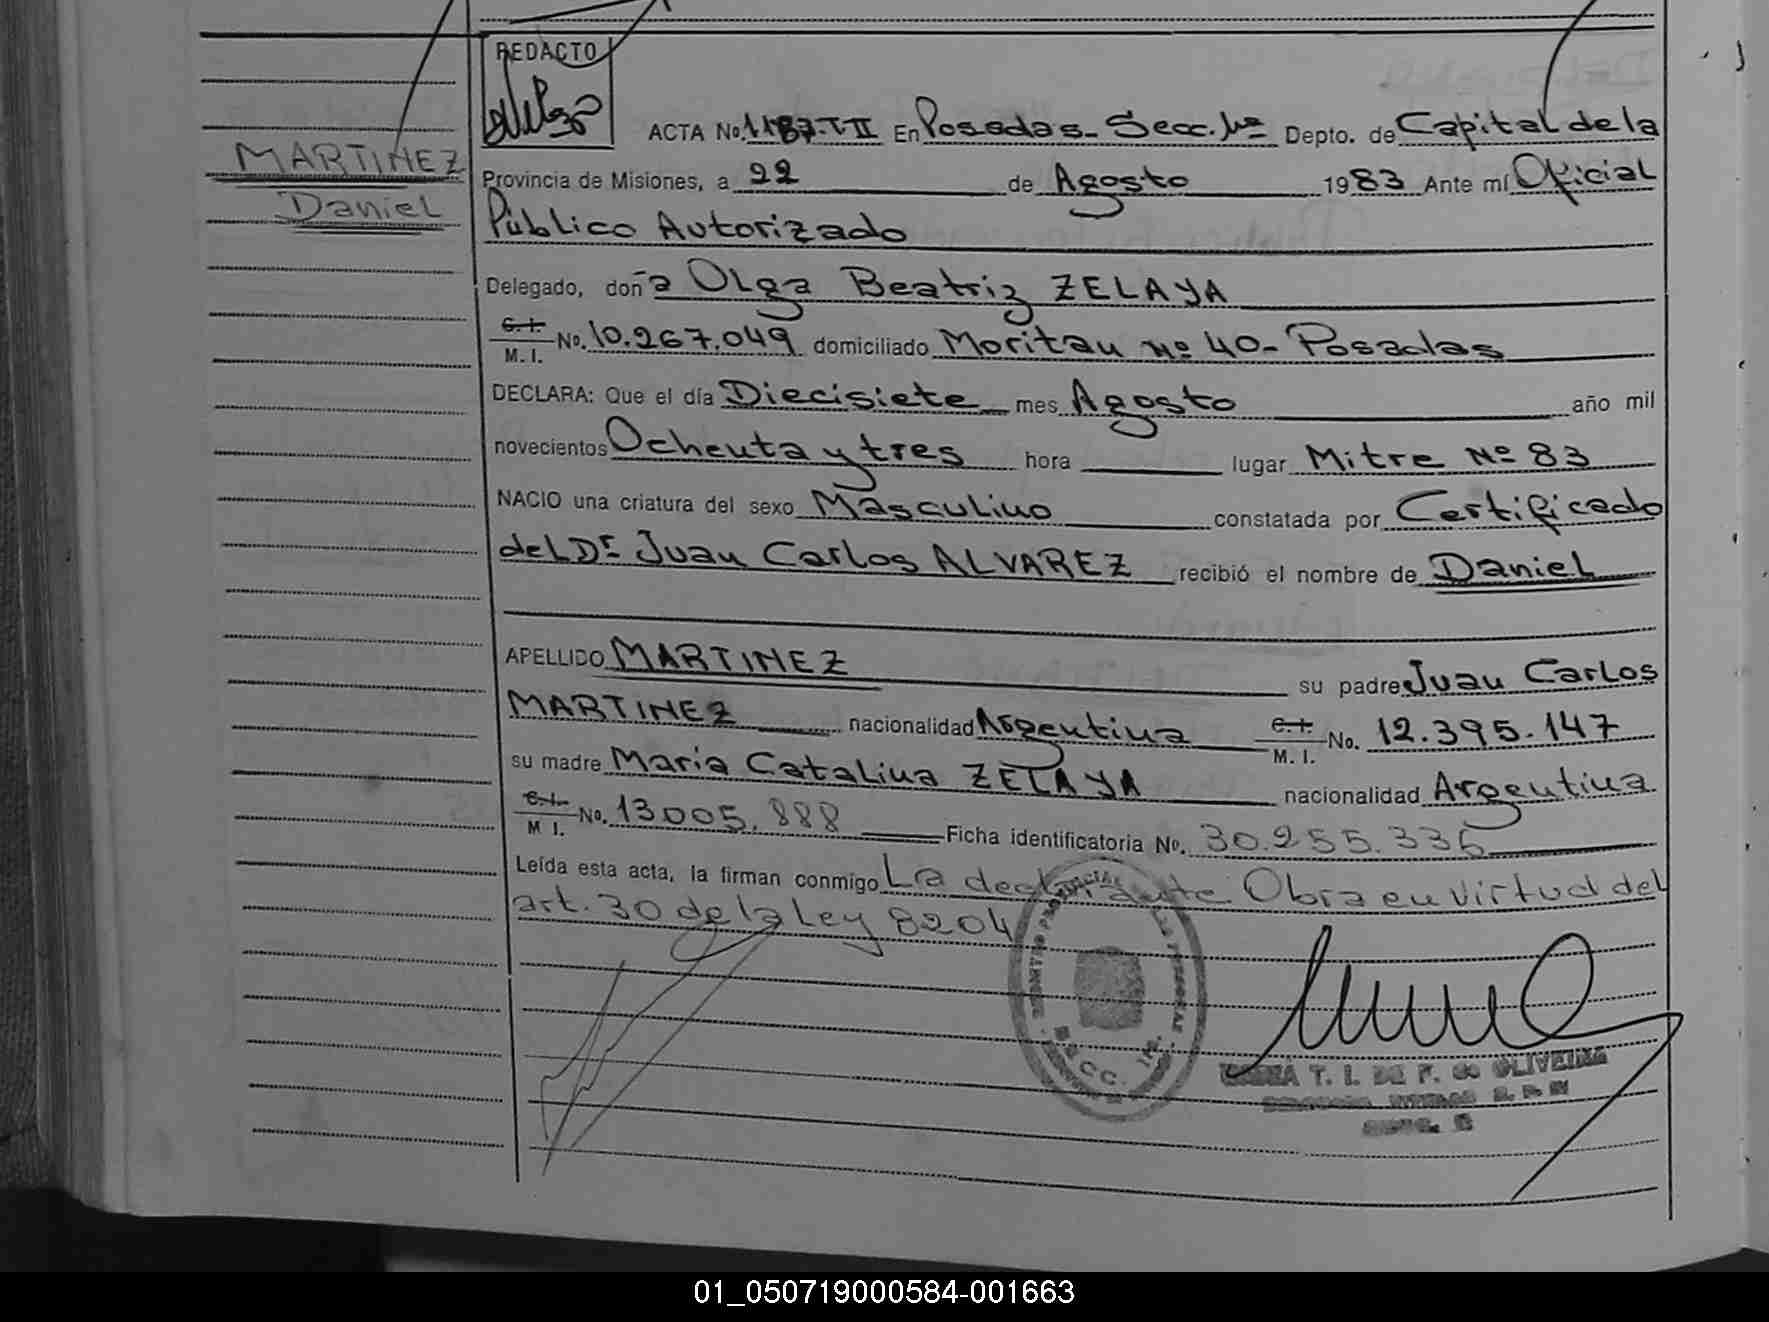 REDACTO
MARTINEZ
Daniel
ACTA No. 1187-T-II En Posadas- Secc. 1ª Depto. de Capital de la
Provincia de Misiones, a 22 de Agosto 1983 Ante mí Oficial
Público Autorizado
Delegado, doña Olga Beatriz ZELAYA
C.I. M. I. No. 10.267.049 domiciliado Moritau nº 40- Posadas
DECLARA: Que el día Diecisiete mes Agosto año mil
novecientos Ochenta y tres hora lugar Mitre Nº 83
NACIO una criatura del sexo Masculino constatada por Certificado
del Dr. Juan Carlos ALVAREZ recibió el nombre de Daniel
APELLIDO MARTINEZ su padre Juan Carlos
MARTINEZ nacionalidad Argentina C.I. M. I. No. 12.395.147
su madre María Catalina ZELAYA nacionalidad Argentina
C.I. M I. No. 13.005.888 Ficha identificatoria No. 30.255.336
Leída esta acta, la firman conmigo La declarante Obra en virtud del
art. 30 de la Ley 8204
T. I. DE F. de OLIVEIRA
01_050719000584-001663